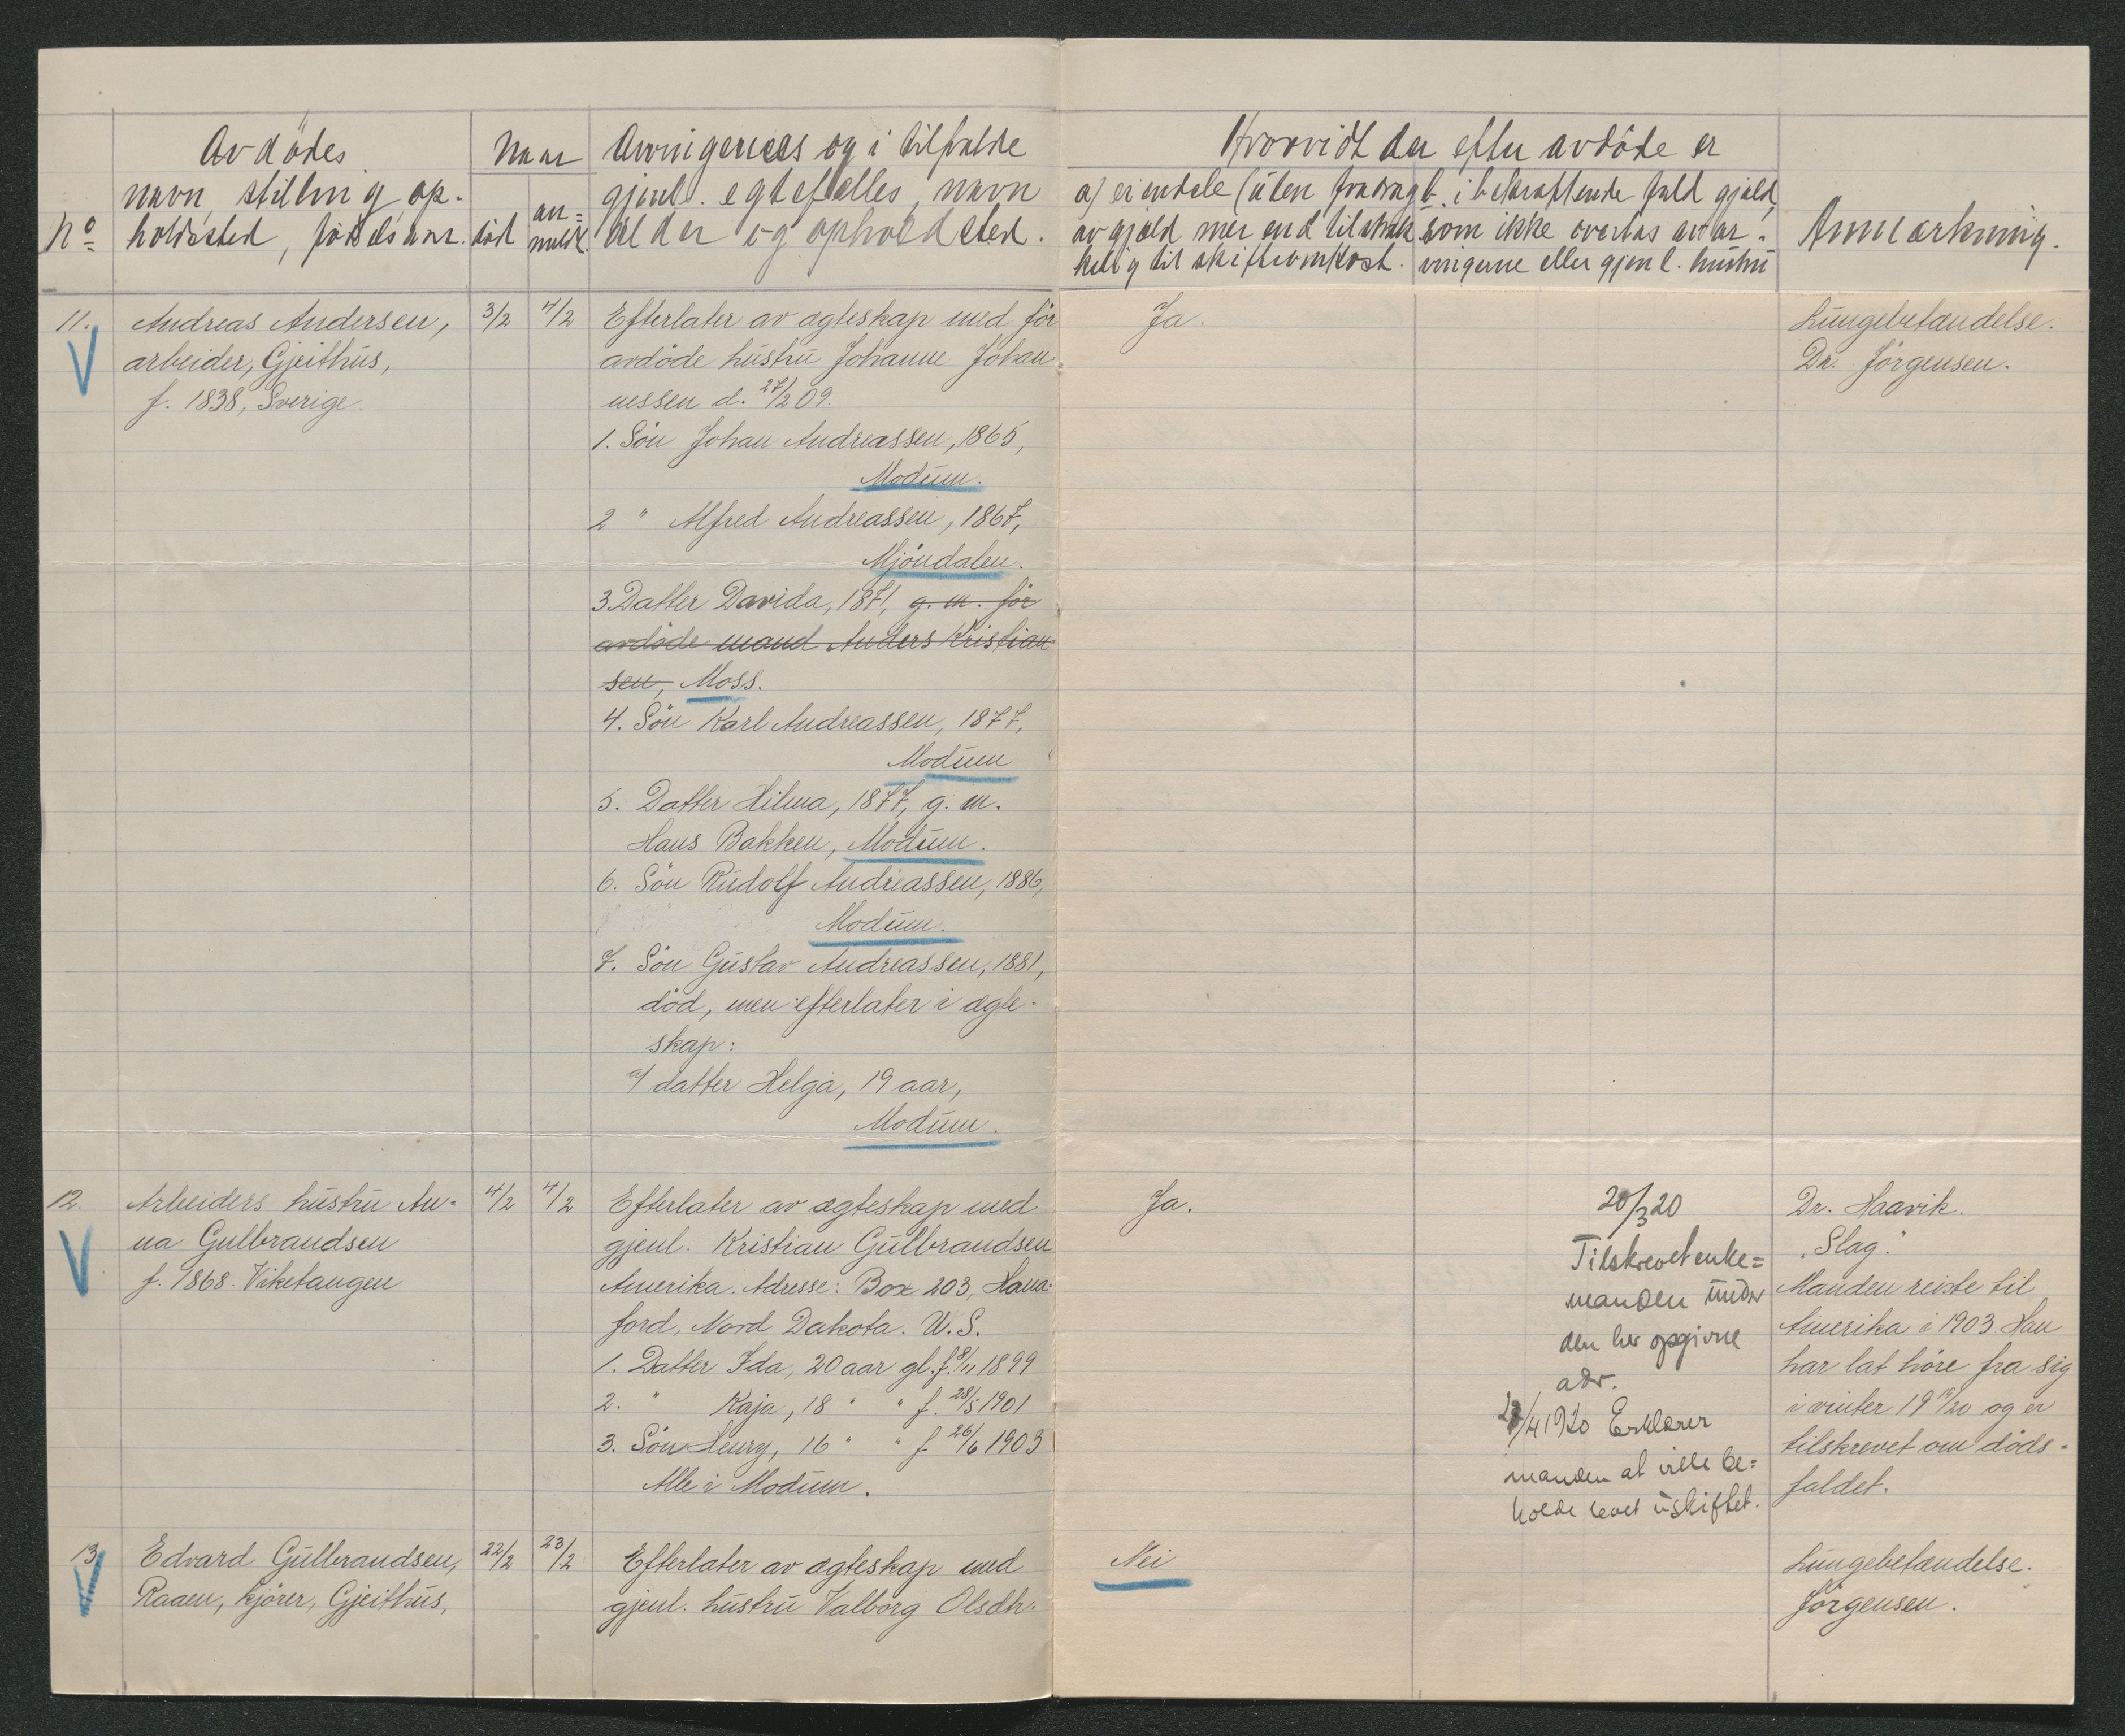 Avdödes
navn, stilling op-
No holdssted, födselsaar.
Naar
död
an=
meldt
Arvingernes og i tilfælde
gjenl. egtefælles, navn
alder og opholdssted.
Hvorvidt der efter avdöde er
a) eiendele (uten fradrag
av gjæld mer end tilstræk
kelig til skifteomkost.
b. i bekræftende fald gjæld,
som ikke overtas av ar-
vingerne eller gjenl. hustru
Anmærkning.
11. Andreas Andersen,
arbeider, Gjeithus,
f. 1838, Sverige.
3/2
4/2
Efterlater av ægteskap med för
avdöde hustru Johanne Johan-
nessen d. 27/2 09.
1. Sön Johan Andreassen, 1865,
Modum.
2 " Alfred Andreassen, 1867,
Mjöndalen.
3 Datter Davida, 1871, g. m. för
avdöde mand Anders Kristian-
sen, Moss.
4. Sön Karl Andreassen, 1877,
Modum
5. Datter Hilma, 1877, g. m.
Hans Bakken, Modum.
6. Sön Rudolf Andreassen, 1886,
Modum.
7. Sön Gustav Andreassen, 1881,
död, men efterlater i ægte-
skap:
a/ datter Helga, 19 aar,
Modum.
Ja.
Lungebetændelse.
Dr. Jörgensen.
12. Arbeiders hustru An-
na Gulbrandsen
f. 1868. Viketangen
4/2
4/2
Efterlater av ægteskap med
gjenl. Kristian Gulbrandsen
Amerika. Adresse: Box 203, Hana-
ford, Nord Dakota. U.S.
1. Datter Ida, 20 aar gl. f. 8/11 1899
2. " Kaja, 18 " " f. 28/5 1901
3. Sön Henry, 16 " " f 26/6 1903
Alle i Modum.
Ja.
20/3 20
Tilskrevet enke=
manden under
den her opgivne
adr.
/4 1920 Erklærer
manden at ville be=
holde boet uskiftet.
Dr. Haavik.
"Slag."
Manden reiste til
Amerika i 1903 Han
har lat höre fra sig
i vinter 19 19/20 og er
tilskrevet om döds-
faldet.
13. Edvard Gulbrandsen,
Raaen, kjörer, Gjeithus,
22/2
23/2
Efterlater av ægteskap med
gjenl. hustru Valborg Olsdtr.
Nei
Lungebetændelse.
Jörgensen.